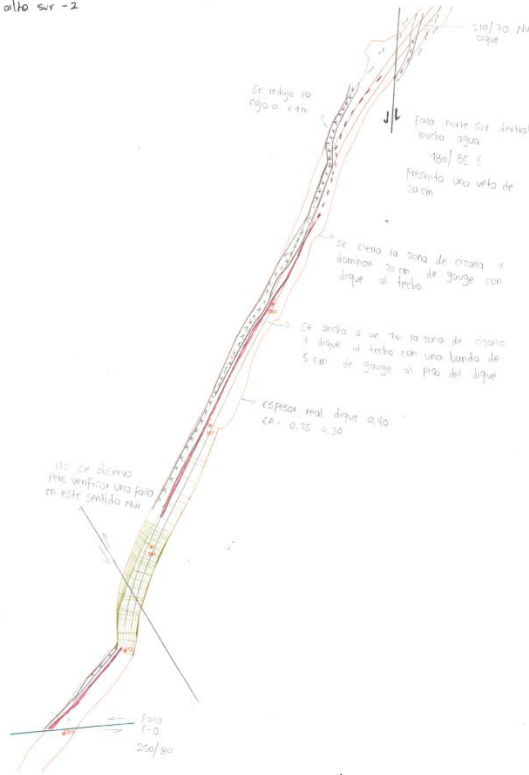 alto sur -2
210/70 NW
Dique
Se redujo la
caja a <1m
Falla norte sur dextral
mucha agua
180/85 E
Presenta una veta de
20 cm
se cierra la zona de cizalla y
dominan 20 cm de gouge con
dique al techo
Se ancha a un 1m la zona de cizalla
y dique al techo con una banda de
5 cm de gouge al piso del dique
espesor real dique 0,40
0,25 0,30
No se observa
verificar una falla
en este sentido NW
Falla
E-O
250/80